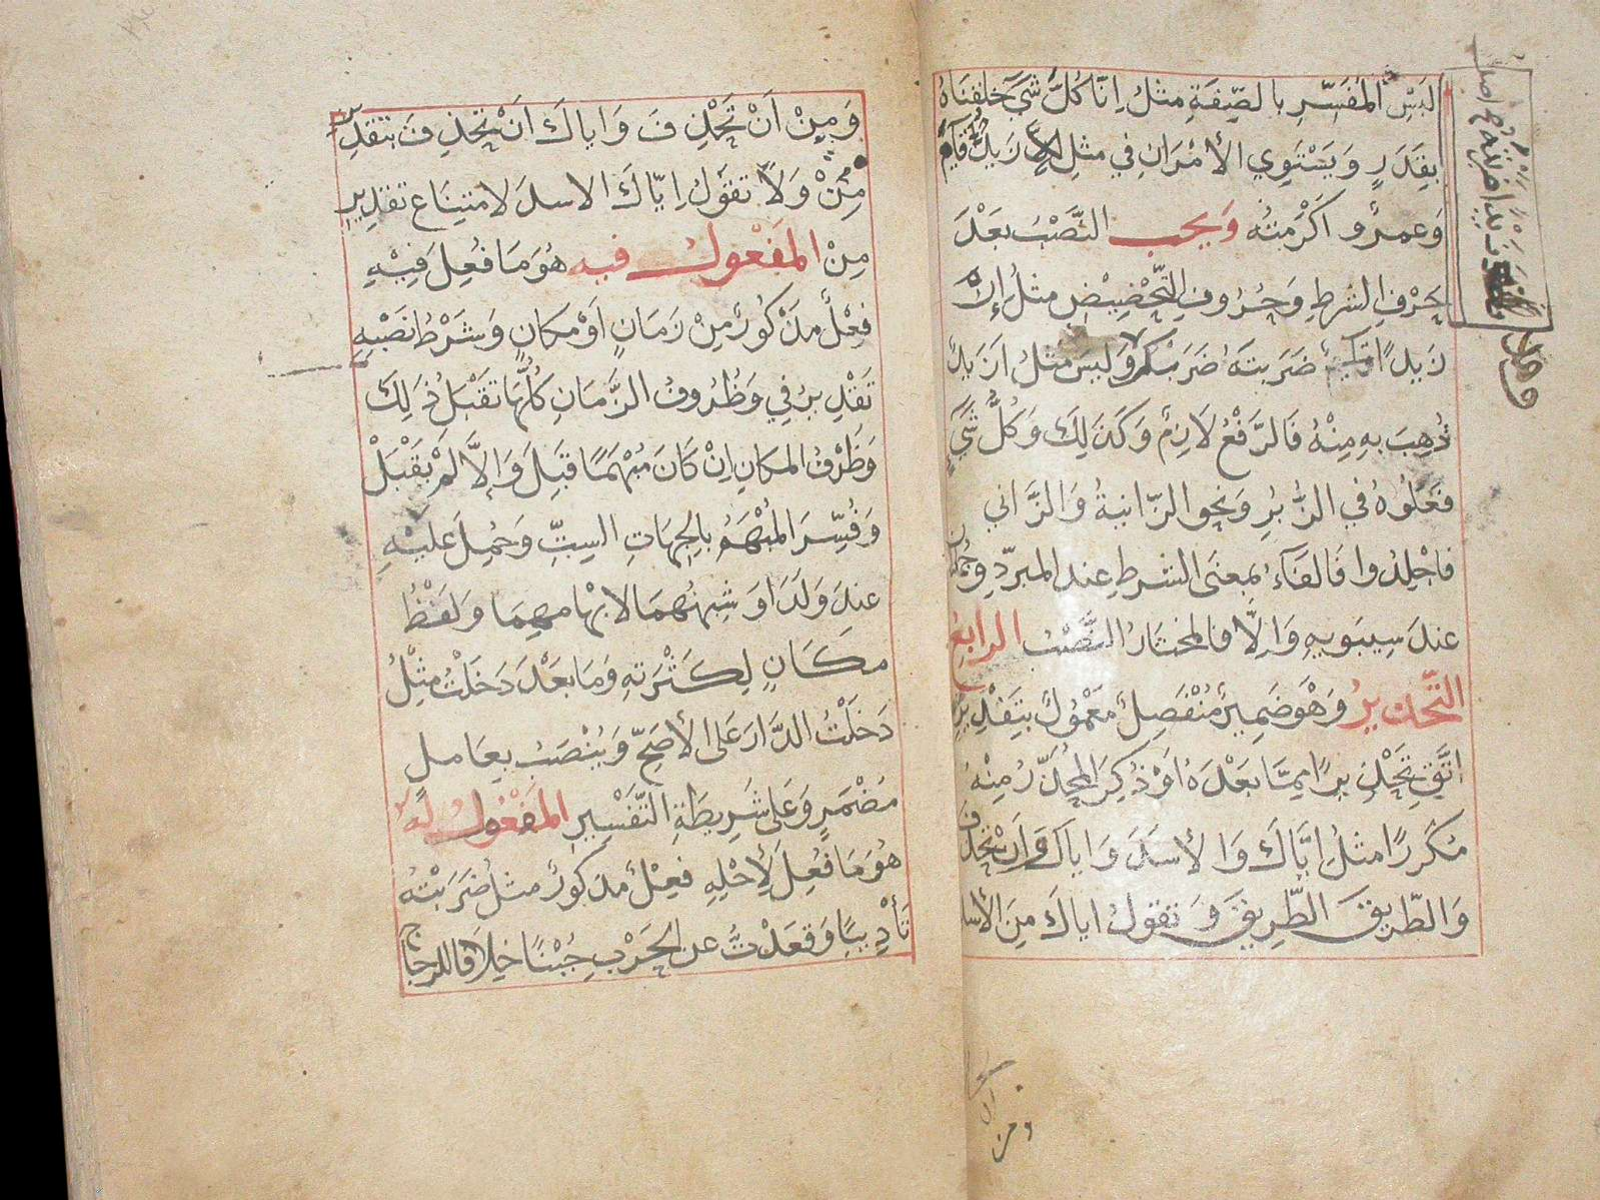 لبس المفسر بالصفة مثل انا كل شي خلقناه
بقدر ويستوي الأمران في مثل زيد قام
وعمرو اكرمته ويجب النصب بعد
حرف الشرط وحروف التحضيض مثل إن
زيدا ضربته ضربك وليس مثل ازيد
ذهب به منه فالرفع لازم وكذلك وكل شي
فعلوه في الزبر ونحو الزانية والزاني
فاجلدوا فالفاء بمعنى الشرط عند المبرد وجملتان
عند سيبويه وإلا فالمختار النصب الرابع
التحذير وهو ضمير منفصل معمول بتقدير
اتق تحذيرا مما بعده او ذكر المحذر منه
مكررا مثل اياك والأسد واياك وان تحذف
والطريق الطريق وتقول اياك من الأسد
ومن
ومن ان تحذف واياك ان تحذف بتقدير
من ولا تقول اياك الاسد لامتناع تقدير
من المفعول فيه هو ما فعل فيه
فعل مذكور من زمان او مكان وشرط نصبه
تقدير في وظروف الزمان كلها تقبل ذلك
وظرف المكان ان كان مبهما قبل وإلا لم يقبل
وفسر المبهم بالجهات الست وحمل عليه
عند ولدا وشبههما لابهامهما ولفظ
مكان لكثرته وما بعد دخلت مثل
دخلت الدار على الأصح وينصب بعامل
مضمر وعلى شريطة التفسير المفعول له
هو ما فعل لأجله فعل مذكور مثل ضربته
تأديبا وقعدت عن الحرب جبنا خلافا للزجاج